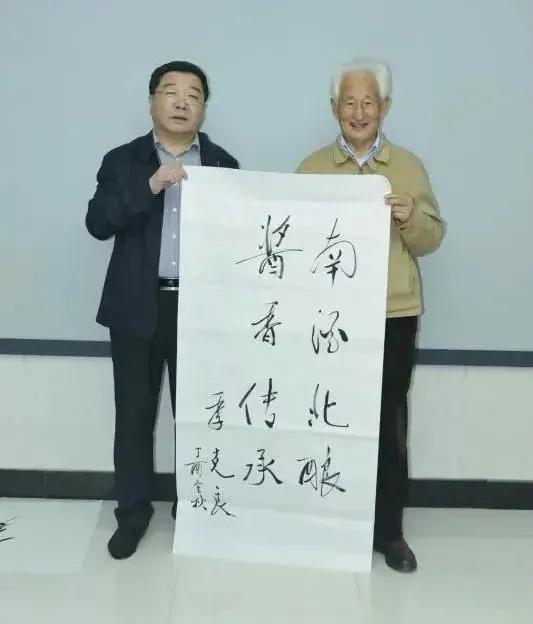 南酒北釀
醬香传承
季克良
丁酉金秋